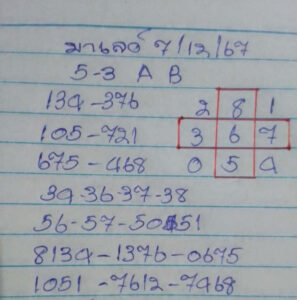 มาเลย์ 7/12/67
5-3 A B
134-376 2 8 1
105-721 3 6 7
675-468 0 5 4
34-36-37-38
56-57-50-51
8134-1376-0675
1051-7612-7468